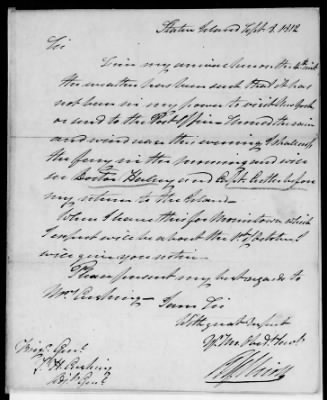 Staten Island Sept. 8. 1812
Sir
Since my arrival here on the 4th inst
the weather has been such that it has
not been in my power to visit New York
or send to the Post Office. Should the rain
and wind cease this evening I shall cross
the ferry in the morning and will
see Doctor and Capt. before
my return to the Island.
When I leave this for Morristown which
I expect will be about the 1st October
will give you notice.
Please present my best regards to
Mrs. Cushing — I am Sir
With great respect
Yr. Mo. Obdt. Servt.
Brig. Genl.
T. H. Cushing
Adjt. Genl.